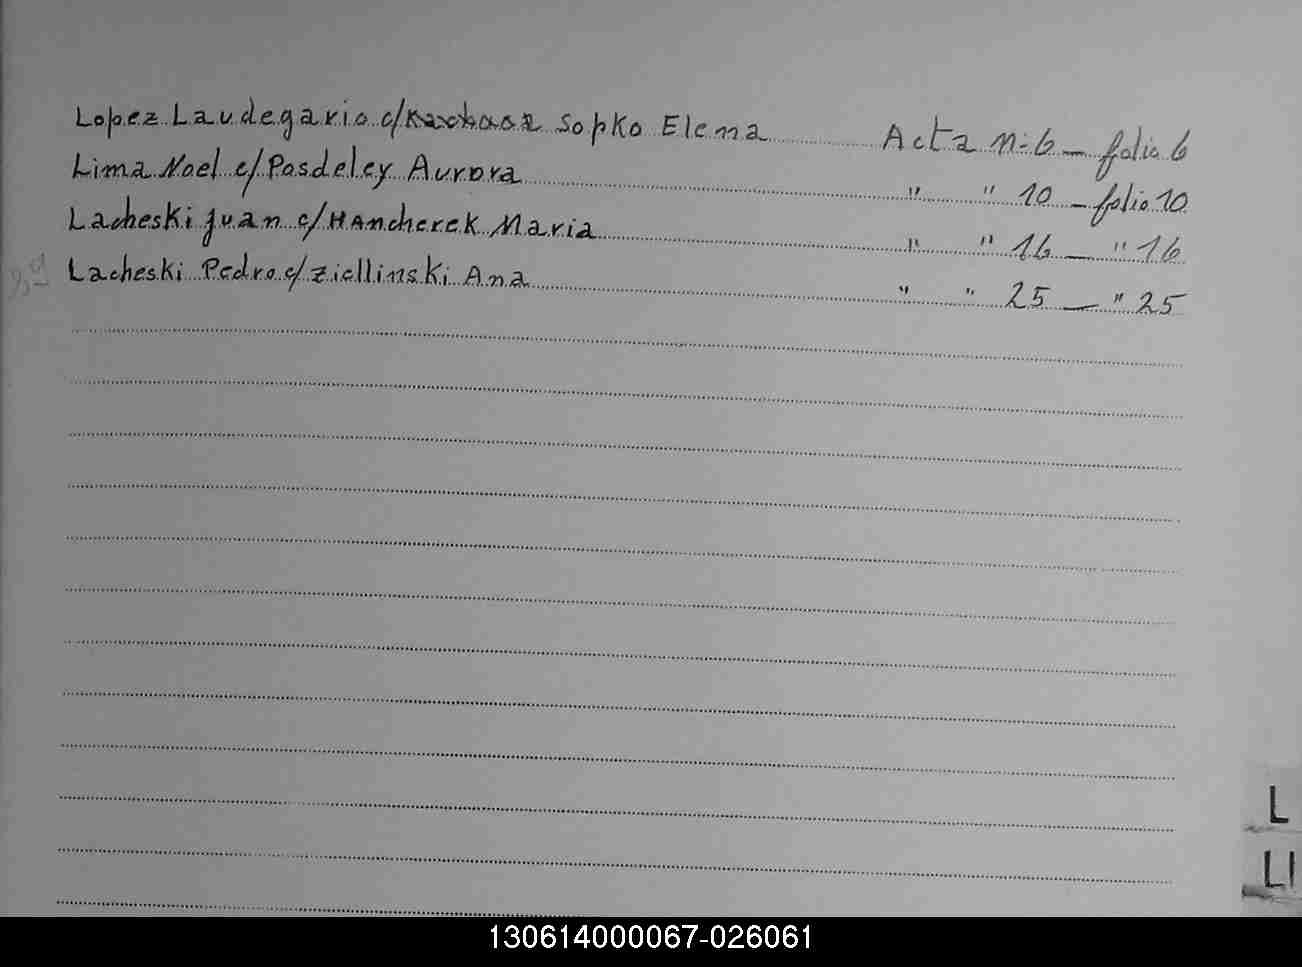 Lopez Laudegario c/ Sopko Elena Acta n: 6 — folio 6
Lima Noel c/ Posdeley Aurora " " 10 — folio 10
Lacheski Juan c/ Hancherek Maria " " 16 — " 16
Lacheski Pedro c/ Ziellinski Ana " " 25 — " 25
L
LI
130614000067-026061